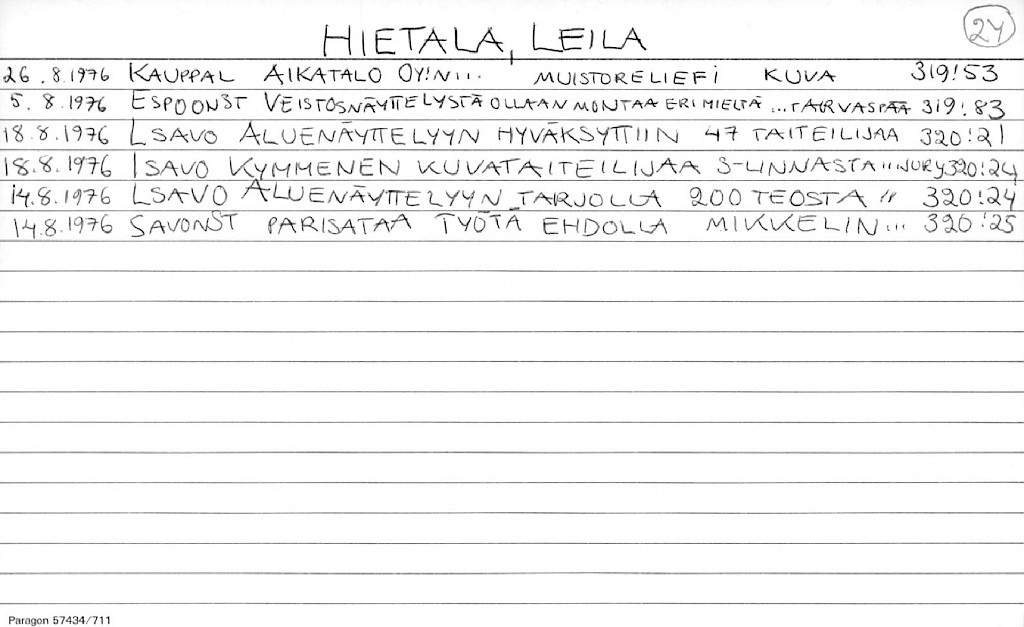 HIETALA, LEILA
24
26.8.1976 KAUPPAL AIKATALO OY:N... MUISTORELIEFI KUVA 319:53
5.8.1976 ESPOONST VEISTOSNÄYTTELYSTÄ OLLAAN MONTAA ERI MIELTÄ ... TARVASPÄÄ 319:83
18.8.1976 LSAVO ALUENÄYTTELYYN HYVÄKSYTTIIN 47 TAITEILIJAA 320:21
18.8.1976 ISAVO KYMMENEN KUVATAITEILIJAA S-LINNASTA " JURY 320:24
14.8.1976 LSAVO ALUENÄYTTELYYN TARJOLLA 200 TEOSTA " 320:24
14.8.1976 SAVONST PARISATAA TYÖTÄ EHDOLLA MIKKELIN... 320:25
Paragon 57434/711